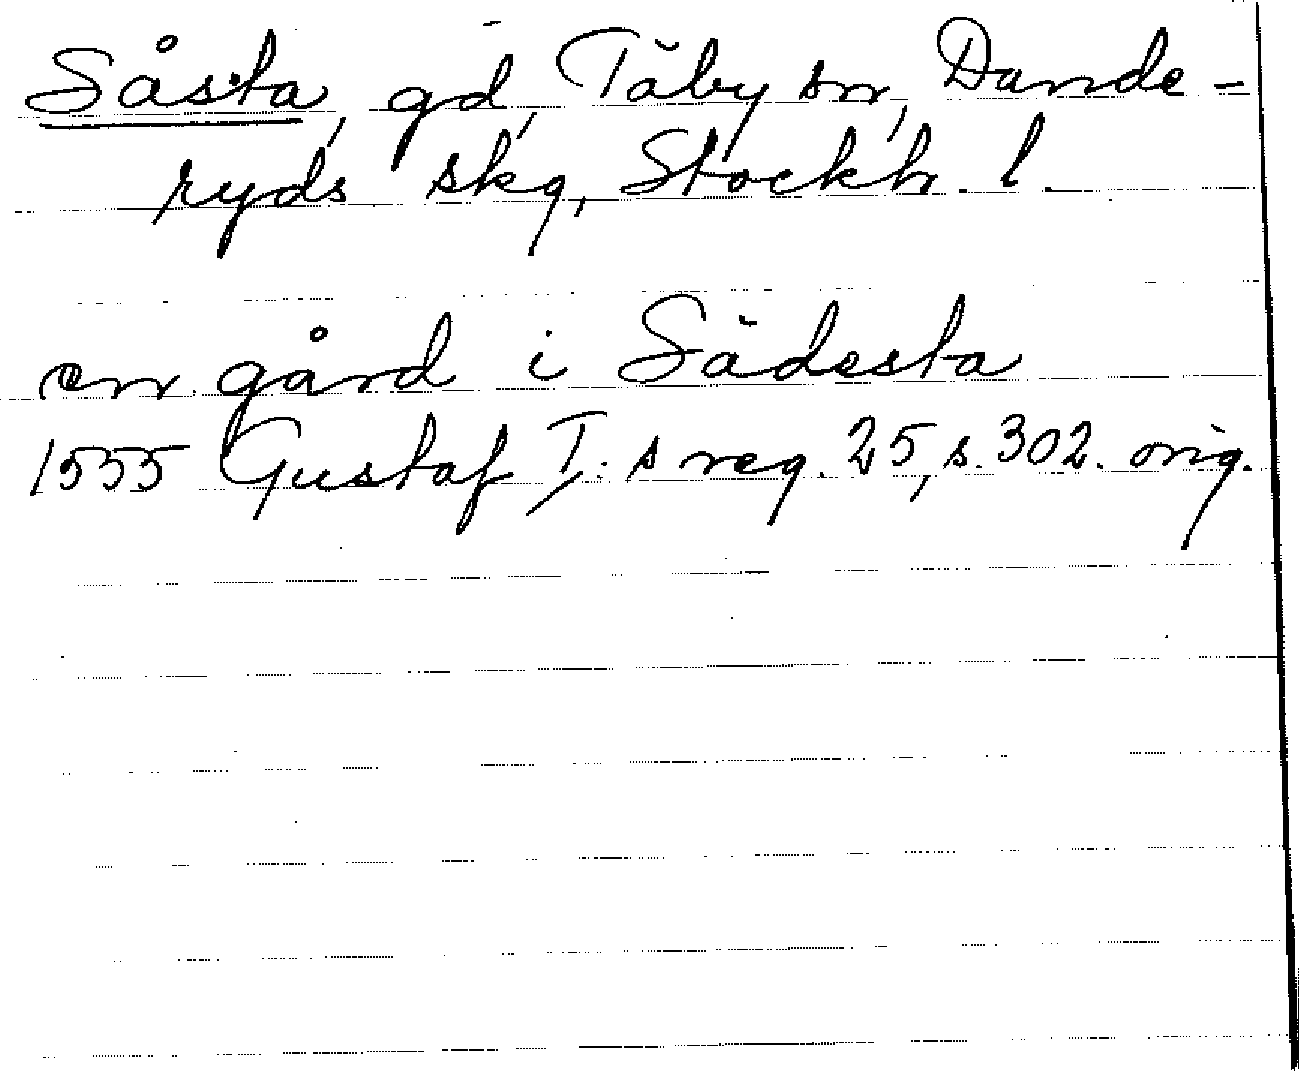 Såsta, gd, Täby sn, Dande-
ryds skg, Stockh. l.
en gård i Sådesta
1555 Gustaf I:s reg. 25, s. 302. orig.